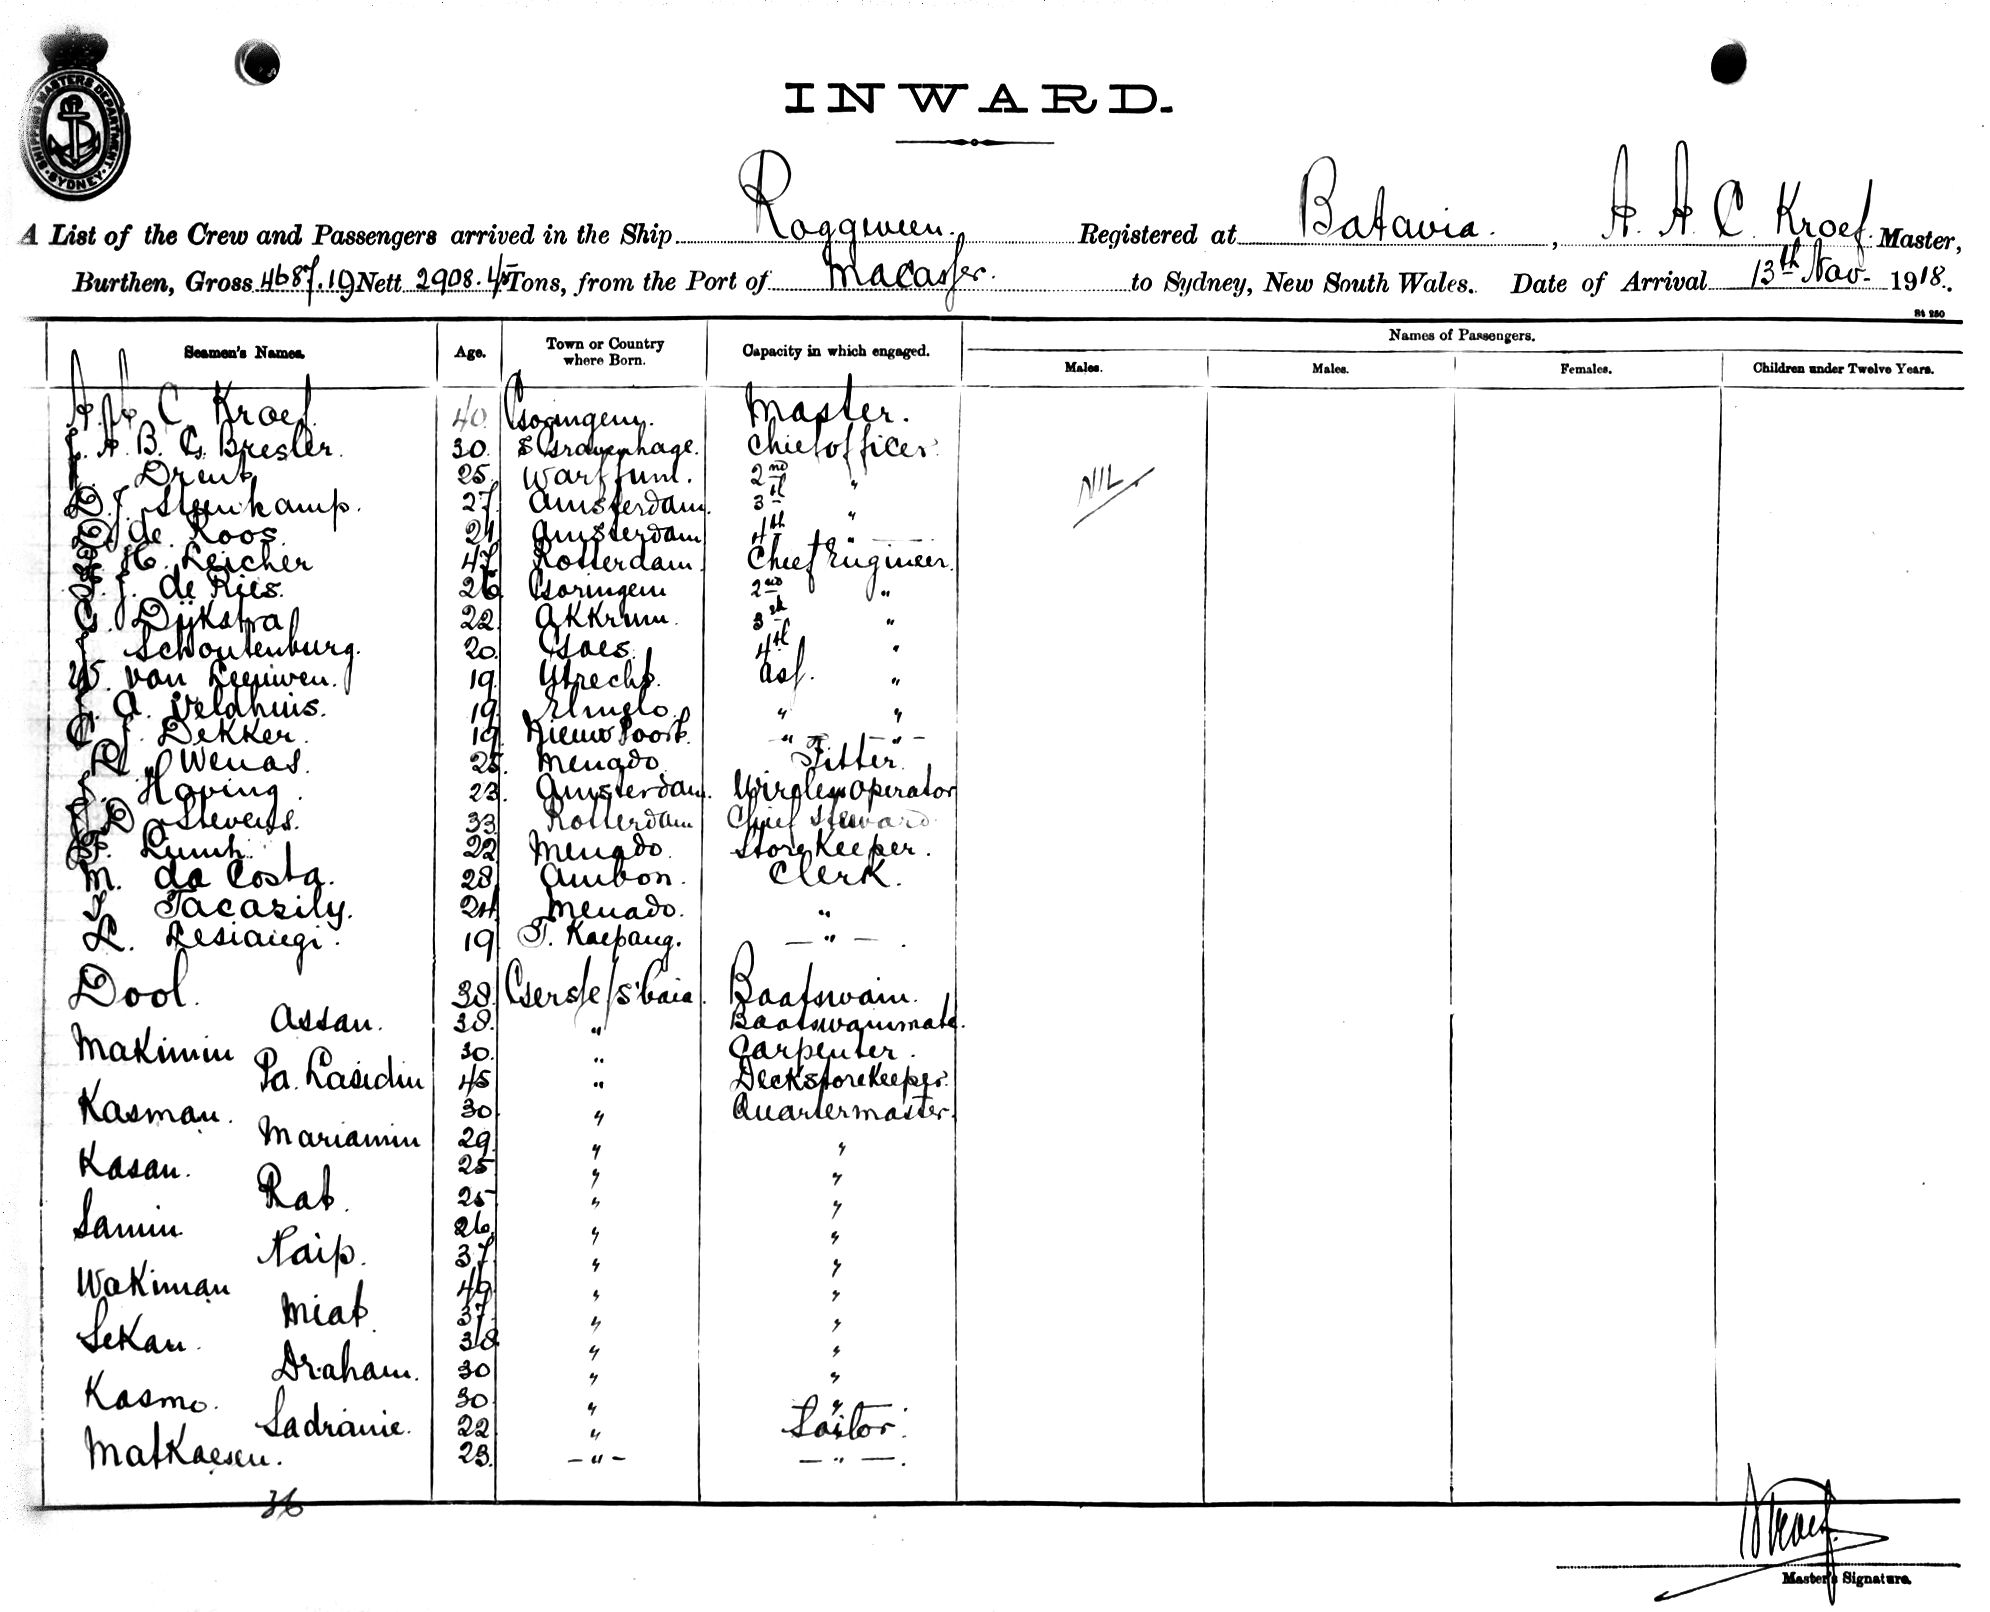 SHIPPING MASTERS DEPARTMENT SYDNEY
INWARD.
A List of the Crew and Passengers arrived in the Ship Roggeveen. Registered at Batavia. , A. A. C. Kroef. Master,
Burthen, Gross 4687.19 Nett 2908.45 Tons, from the Port of Macasser. to Sydney, New South Wales. Date of Arrival 13th Nov- 1918.
St 250
Seamen's Names. Age. Town or Country where Born. Capacity in which engaged. Names of Passengers.
Males. Males. Females. Children under Twelve Years.
A. A. C. Kroef. 40 Master.
J. A. B. G. Bresler. 30. s Gravenhage. Chief officer.
Drent 25. Warffum. 2nd "
NIL
D. J. Steenkamp. 27. Amsterdam. 3d "
de Roos. 21 Amsterdam 4th "
H. Leicher 47 Rotterdam. Chief Engineer.
J. de Ries. 26. 2nd "
G. Dijkstra 22. Akkrum. 3d "
J. Schoutenburg. 20. Goes. 4th "
W. van Leeuwen. 19 Utrecht. Ass. "
A. Veldhuis. 19 " "
C. J. Dekker. 19 Nieuwpoort. - " - " -
R. Wenas. 25. Menado Fitter.
J. Hoving. 23. Amsterdam. Wireless operator
D. Stevens. 33 Rotterdam Chief Steward
F. 22 Menado. Storekeeper.
M. da Costa. 28 Ambon. Clerk.
Tacazily. 24. Menado. "
L. Lesiangi. 19 T. Kaepang. - " - .
Dool. 38. Gersle/S'baia. Boatswain.
Assan. 38. " Boatswainmate.
Makimin 30. " Carpenter.
Pa. Lasidin 45 " Deckstorekeeper.
Kasman. 30 " Quartermaster.
Mariamin 29. " "
Kasan. 25 " "
Rab. 25 " "
Samin. 26. " "
Naip. 37. " "
Wakiman 49. " "
Miab. 37. " "
Sekan. 38 " "
Draham. 30 " "
Kasmo. 30. " "
Sadranie. 22 " Sailor.
Matkaesen. 23. - " - - " - .
36
Kroef.
Master's Signature.